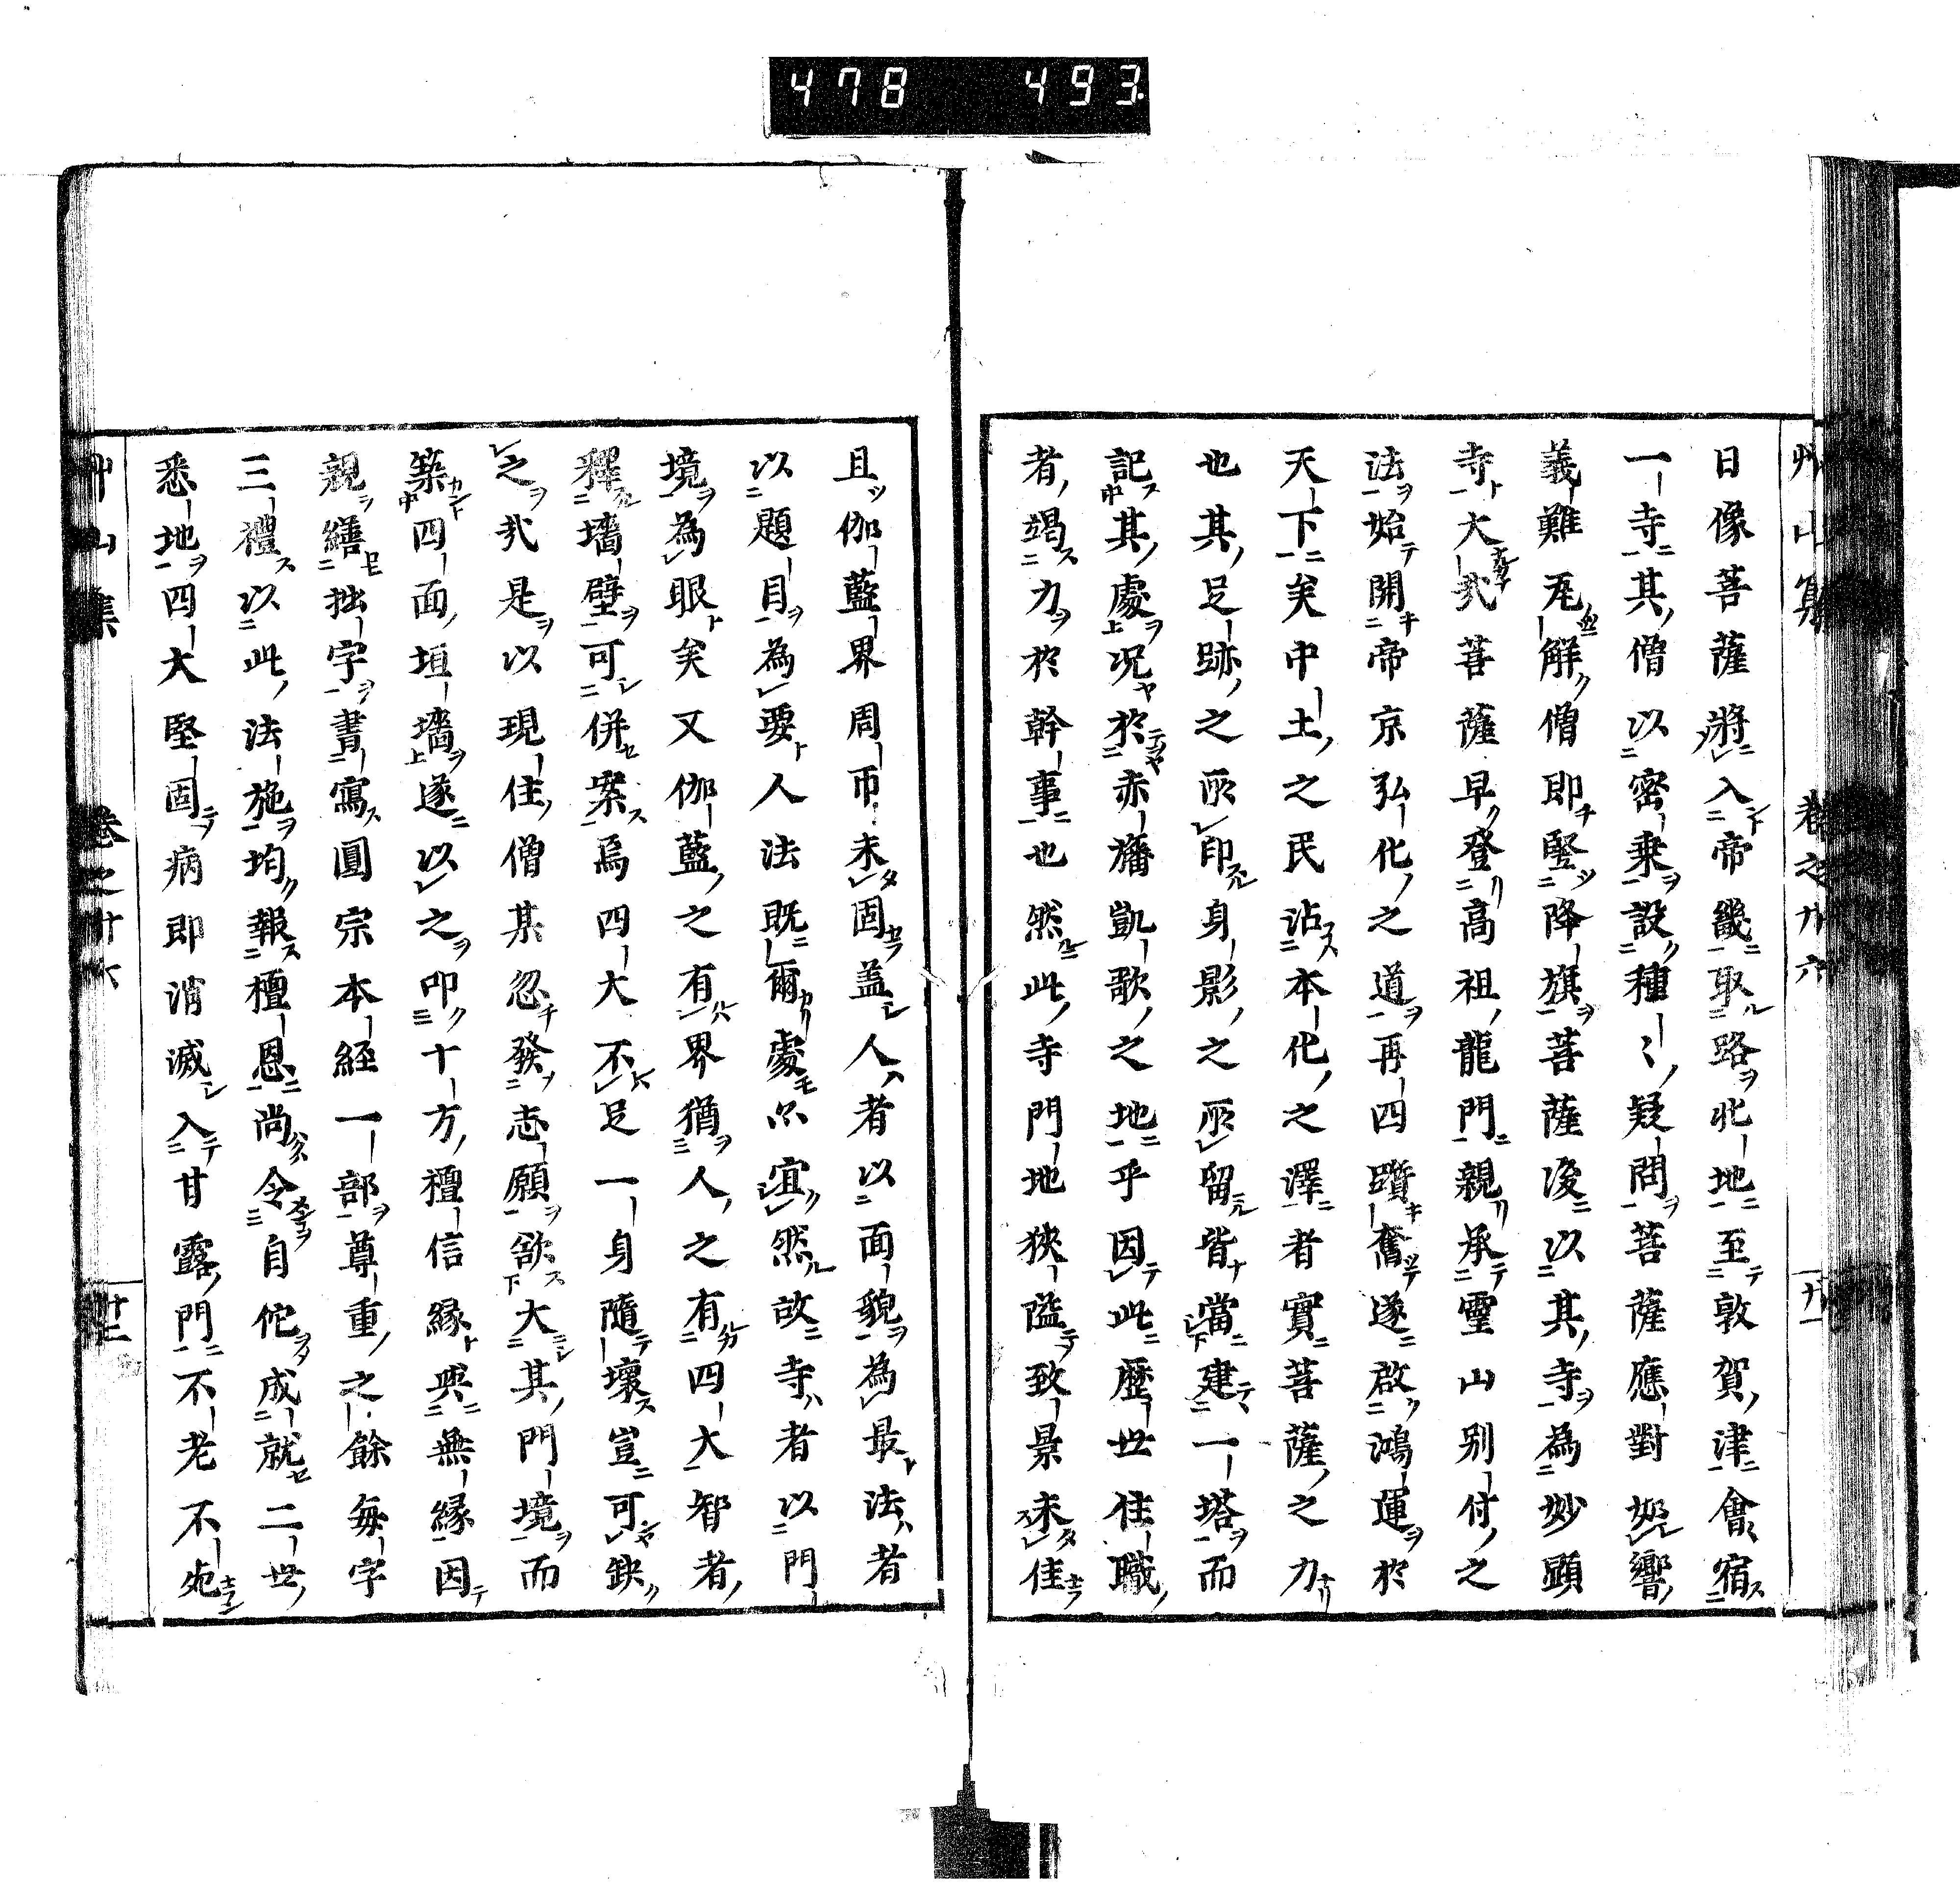 478 493
艸山集 卷之廿六 廿一
日像菩薩將入帝畿取路北地至敦賀津會宿
一寺其僧以密乘設種〻疑問菩薩應對如響
義難瓦解僧即竪降旗菩薩後以其寺為妙顕
寺大哉菩薩早登高祖龍門親承靈山別付之
法始開帝京弘化之道再四躓奮遂啟鴻運於
天下矣中土之民沾本化之澤者實菩薩之力
也其足跡之所印身影之所留皆當建一塔而
記其處况於赤旛凱歌之地乎因此歷世住職
者竭力於幹事也然此寺門地狹隘致景未佳
且伽藍界周帀未固盖人者以面貌為最法者
以題目為要人法既爾處亦宜然故寺者以門
境為眼矣又伽藍之有界猶人之有四大智者
釋墻壁可併案焉四大不足一身隨壞豈可缺
之哉是以現住僧某忽發志願欲大其門境而
築四面垣墻遂以之叩十方檀信緣與無緣因
親繕拙字書寫圓宗本經一部尊重之餘每字
三禮以此法施均報檀恩尚令自佗成就二世
悉地四大堅固病即消滅入甘露門不老不死
艸山集 卷之廿六 廿二